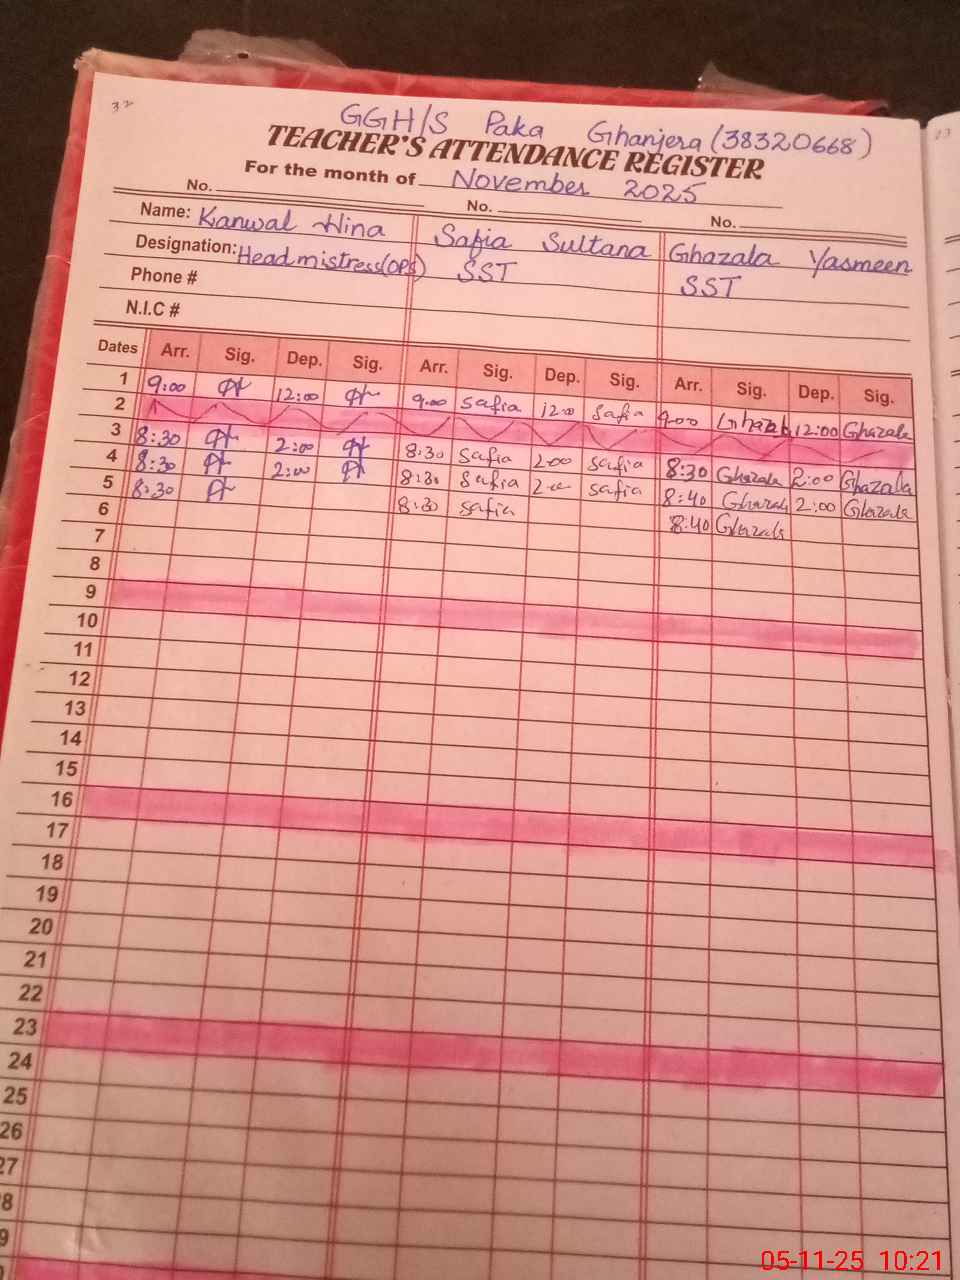 32
GGH/S Paka Ghanjera (38320668)
TEACHER'S ATTENDANCE REGISTER
For the month of November 2025
No. No. No.
Name: Kanwal Hina Safia Sultana Ghazala Yasmeen
Designation: Headmistress(OPS) SST SST
Phone #
N.I.C #
Dates Arr. Sig. Dep. Sig. Arr. Sig. Dep. Sig. Arr. Sig. Dep. Sig.
1 9:00 12:00 9:00 Safia 12:00 Safia 9:00 Ghazala 12:00 Ghazala
2
3 8:30 2:00 8:30 Safia 2:00 Safia 8:30 Ghazala 2:00 Ghazala
4 8:30 2:00 8:30 Safia 2:00 Safia 8:40 Ghazala 2:00 Ghazala
5 8:30 8:30 Safia 8:40 Ghazala
6
7
8
9
10
11
12
13
14
15
16
17
18
19
20
21
22
23
24
25
26
27
8
9
05-11-25 10:21